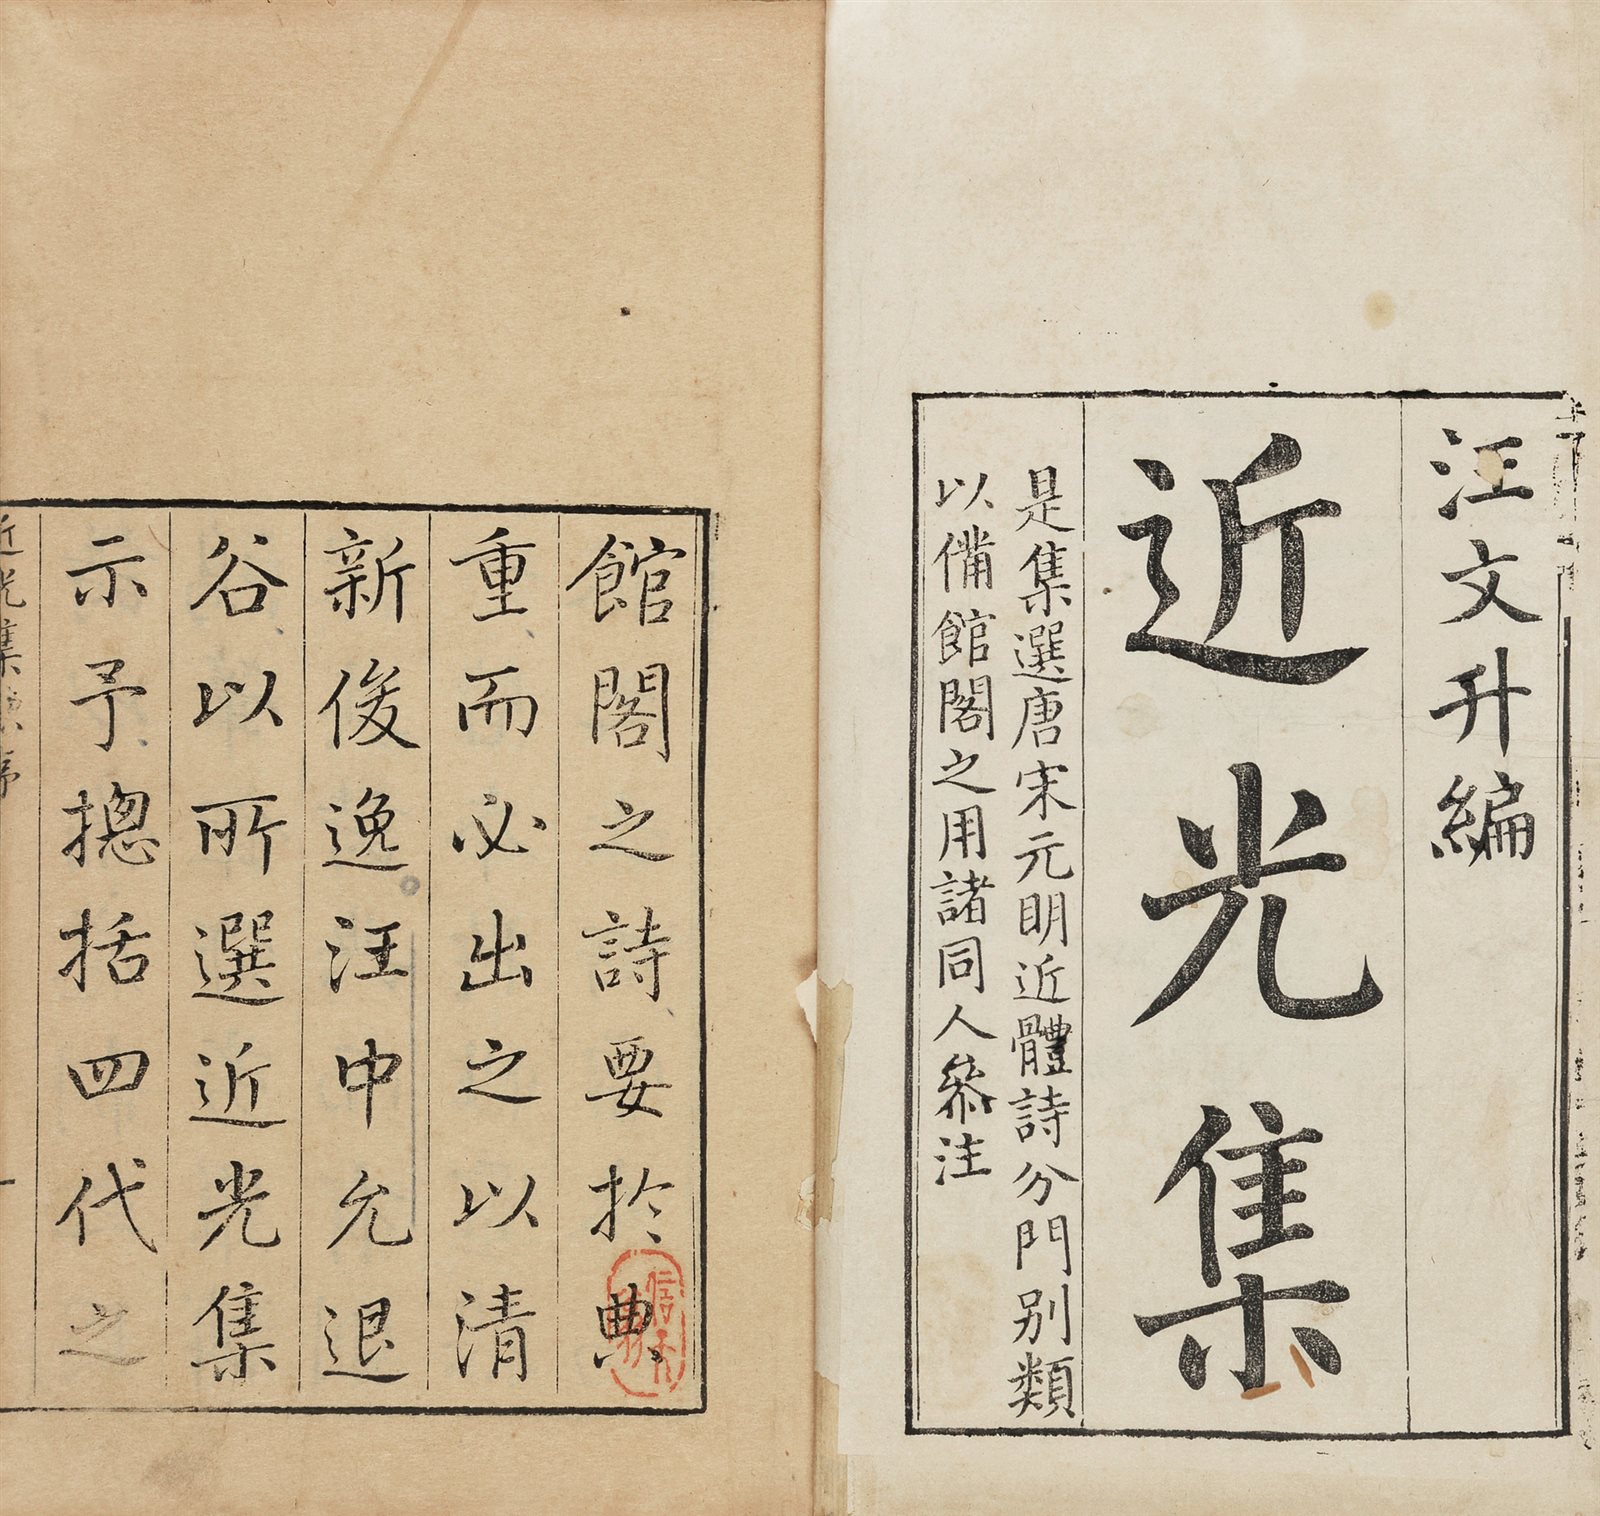 汪文升編
近光集
是集選唐宋元明近體詩分門别類
以備館閣之用諸同人叅注
館閣之詩要於典
重而必出之以清
新俊逸汪中允退
谷以所選近光集
示予摠括四代之
近光集 序